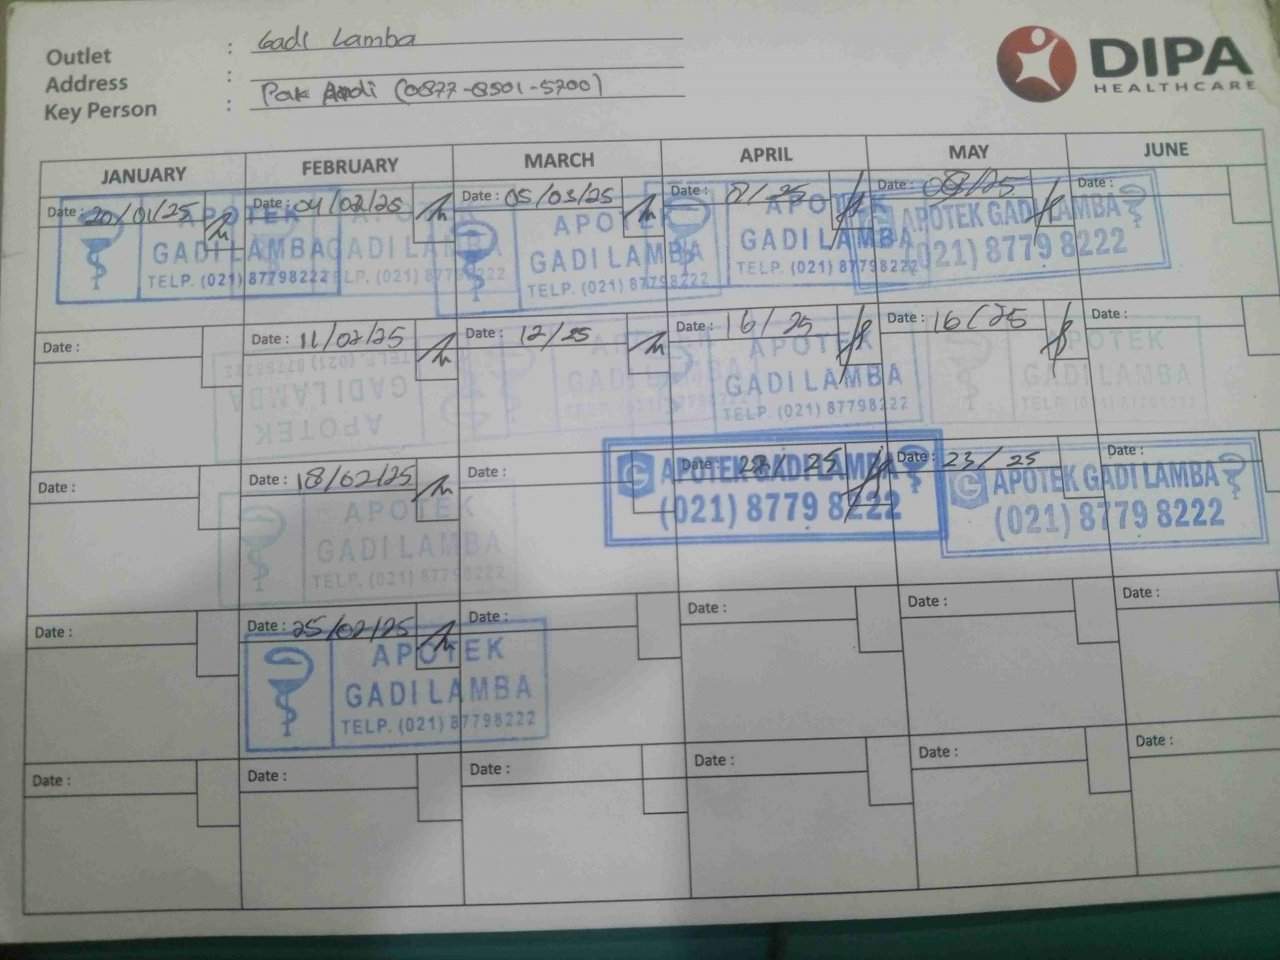 Outlet : Gadi Lamba
Address :
Key Person : Pak Andi (0877-8501-5700)
DIPA
HEALTHCARE
JANUARY FEBRUARY MARCH APRIL MAY JUNE
Date : 20/01/25 Date : 04/02/25 Date : 05/03/25 Date : /25 Date : 08/25 Date :
APOTEK
GADI LAMBA
TELP. (021) 87798222
APOTEK
GADI LAMBA
TELP. (021) 87798222
APOTEK
GADI LAMBA
TELP. (021) 87798222
APOTEK
GADI LAMBA
TELP. (021) 87798222
APOTEK GADI LAMBA
(021) 8779 8222
Date : Date : 11/02/25 Date : 12/25 Date : 16/25 Date : 16/25 Date :
APOTEK
GADI LAMBA
TELP. (021) 87798222
APOTEK
GADI LAMBA
TELP. (021) 87798222
APOTEK
GADI LAMBA
Date : Date : 18/02/25 Date : Date : /25 Date : 23/25 Date :
APOTEK
GADI LAMBA
TELP. (021) 87798222
G APOTEK GADI LAMBA
(021) 8779 8222
G APOTEK GADI LAMBA
(021) 8779 8222
Date : Date : 25/02/25 Date : Date : Date : Date :
APOTEK
GADI LAMBA
TELP. (021) 87798222
Date : Date : Date : Date : Date : Date :